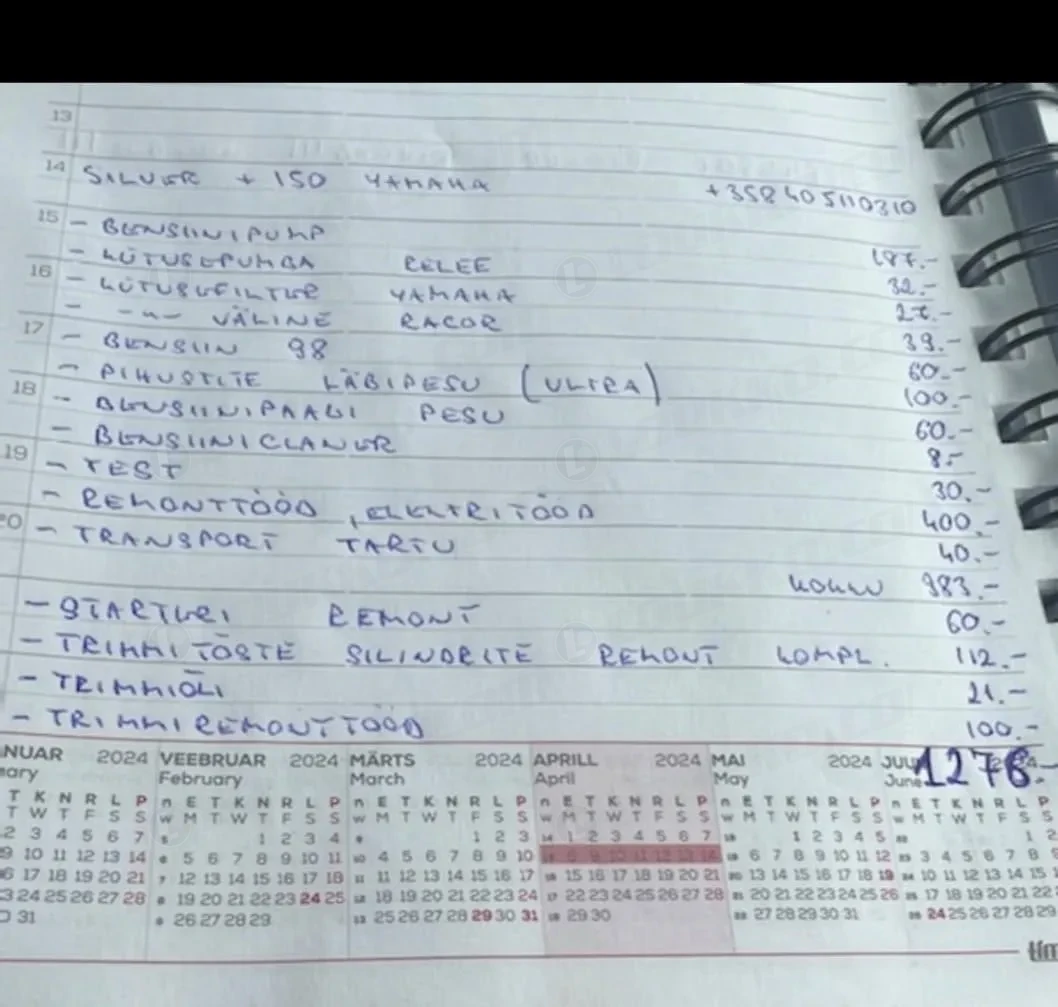 13
14 SILVER + 150 YAMAHA +358 40 5110310
15 - BENSIINIPUMP 187.-
- KÜTUSEPUMBA RELEE 32.-
16 - KÜTUSEFILTER YAMAHA 27.-
- -"- VÄLINE RACOR 39.-
17 - BENSIIN 98 60.-
- PIHUSTITE LÄBIPESU (ULTRA) 100.-
18 - BENSIINIPAAGI PESU 60.-
- BENSIINICLANER 8.-
19 - TEST 30.-
- REMONTTÖÖD, ELEKTRITÖÖD 400.-
20 - TRANSPORT TARTU 40.-
KOKKU 983.-
- STARTERI REMONT 60.-
- TRIMMI TÕSTE SILINDRITE REMONT KOMPL. 112.-
- TRIMMIÕLI 21.-
- TRIMMIREMONTTÖÖD 100.-
1276.-
NUAR 2024 VEEBRUAR 2024 MÄRTS 2024 APRILL 2024 MAI 2024 JUU
ary February March April May June
T K N R L P n E T K N R L P n E T K N R L P n E T K N R L P n E T K N R L P n E T K N R L P
T W T F S S w M T W T F S S w M T W T F S S w M T W T F S S w M T W T F S S w M T W T F S S
2 3 4 5 6 7 5 1 2 3 4 9 1 2 3 14 1 2 3 4 5 6 7 18 1 2 3 4 5 22 1 2
9 10 11 12 13 14 6 5 6 7 8 9 10 11 10 4 5 6 7 8 9 10 15 8 9 10 11 12 13 14 19 6 7 8 9 10 11 12 23 3 4 5 6 7 8 9
16 17 18 19 20 21 7 12 13 14 15 16 17 18 11 11 12 13 14 15 16 17 16 15 16 17 18 19 20 21 20 13 14 15 16 17 18 19 24 10 11 12 13 14 15 1
3 24 25 26 27 28 8 19 20 21 22 23 24 25 12 18 19 20 21 22 23 24 17 22 23 24 25 26 27 28 21 20 21 22 23 24 25 26 25 17 18 19 20 21 22
31 9 26 27 28 29 13 25 26 27 28 29 30 31 18 29 30 22 27 28 29 30 31 26 24 25 26 27 28 29